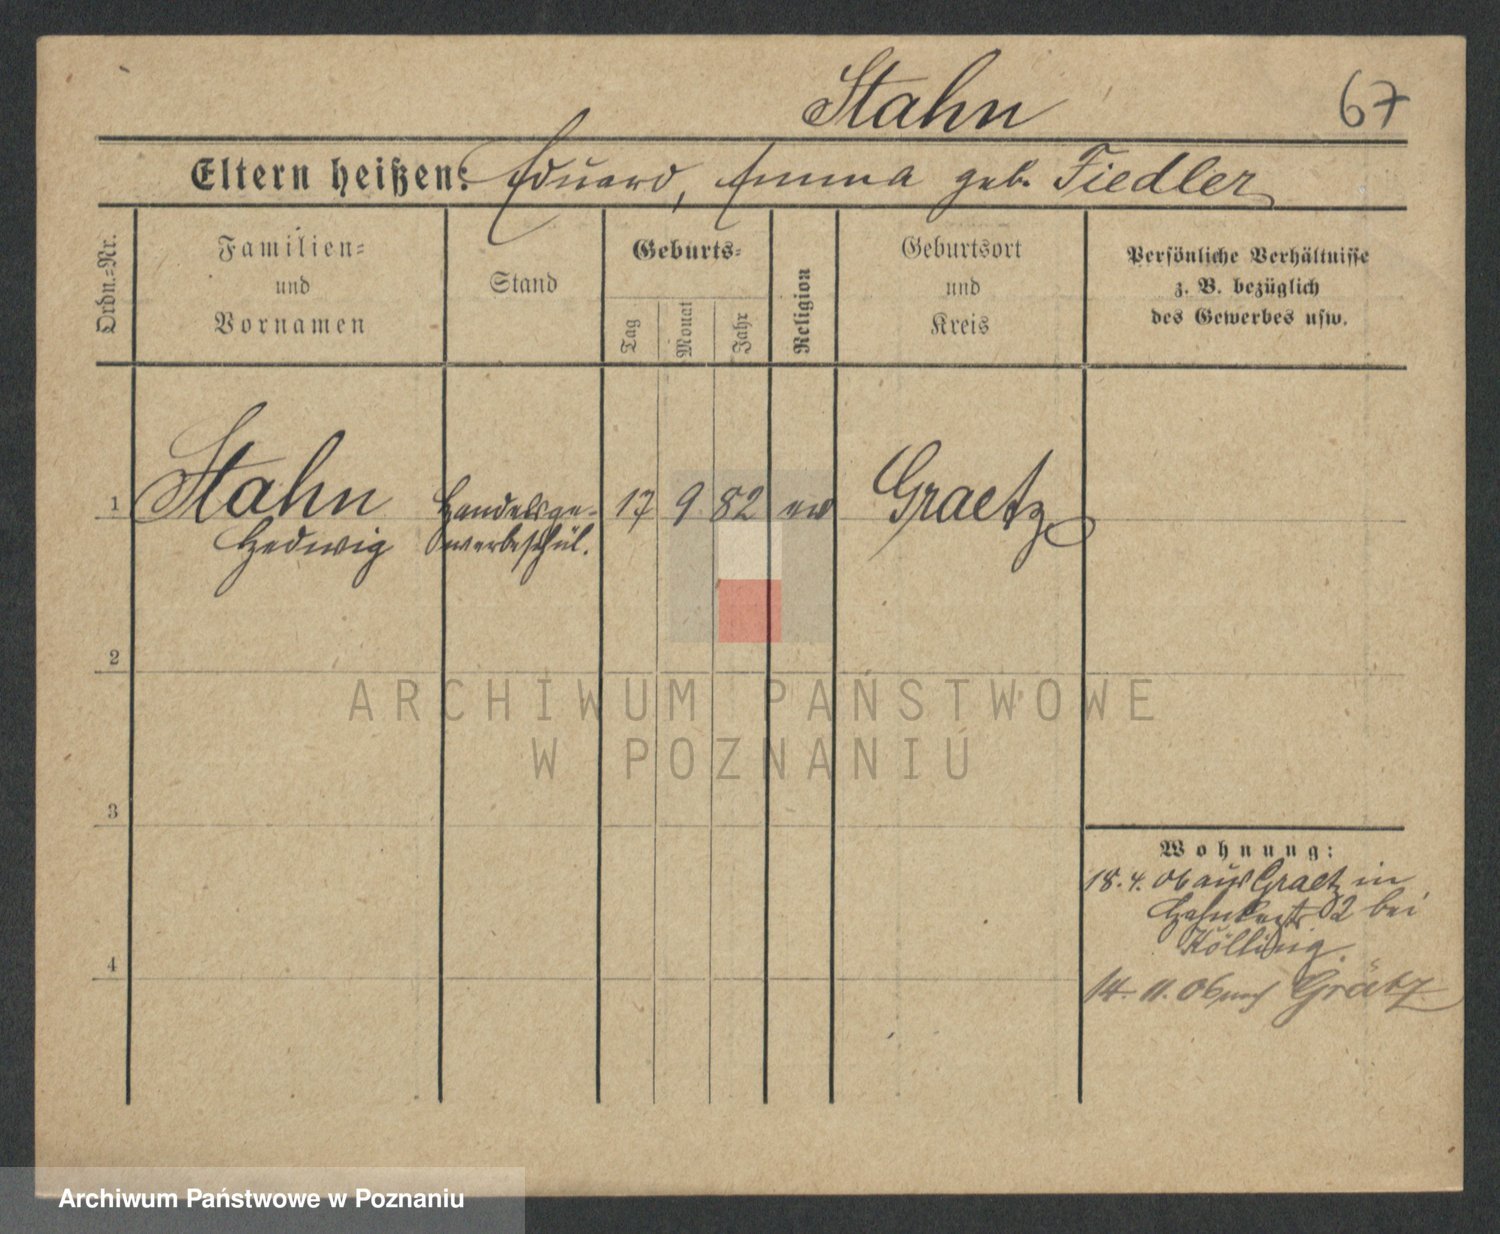 Stahn
67
Eltern heißen: Eduard, Emma geb. Fiedler
Ordn.=Nr.
Familien=
und
Vornamen
Stand
Geburts=
Tag
Monat
Jahr
Religion
Geburtsort
und
Kreis
Persönliche Verhältnisse
z. B. bezüglich
des Gewerbes usw.
1
Stahn
Hedwig
Handelsge-
werbeschül.
17
9
82
ev
Graetz
2
3
4
Wohnung:
18.4.06 aus Graetz in
2 bei
Kölling.
14.11.06 nach Grätz
ARCHIWUM PAŃSTWOWE
W POZNANIU
Archiwum Państwowe w Poznaniu